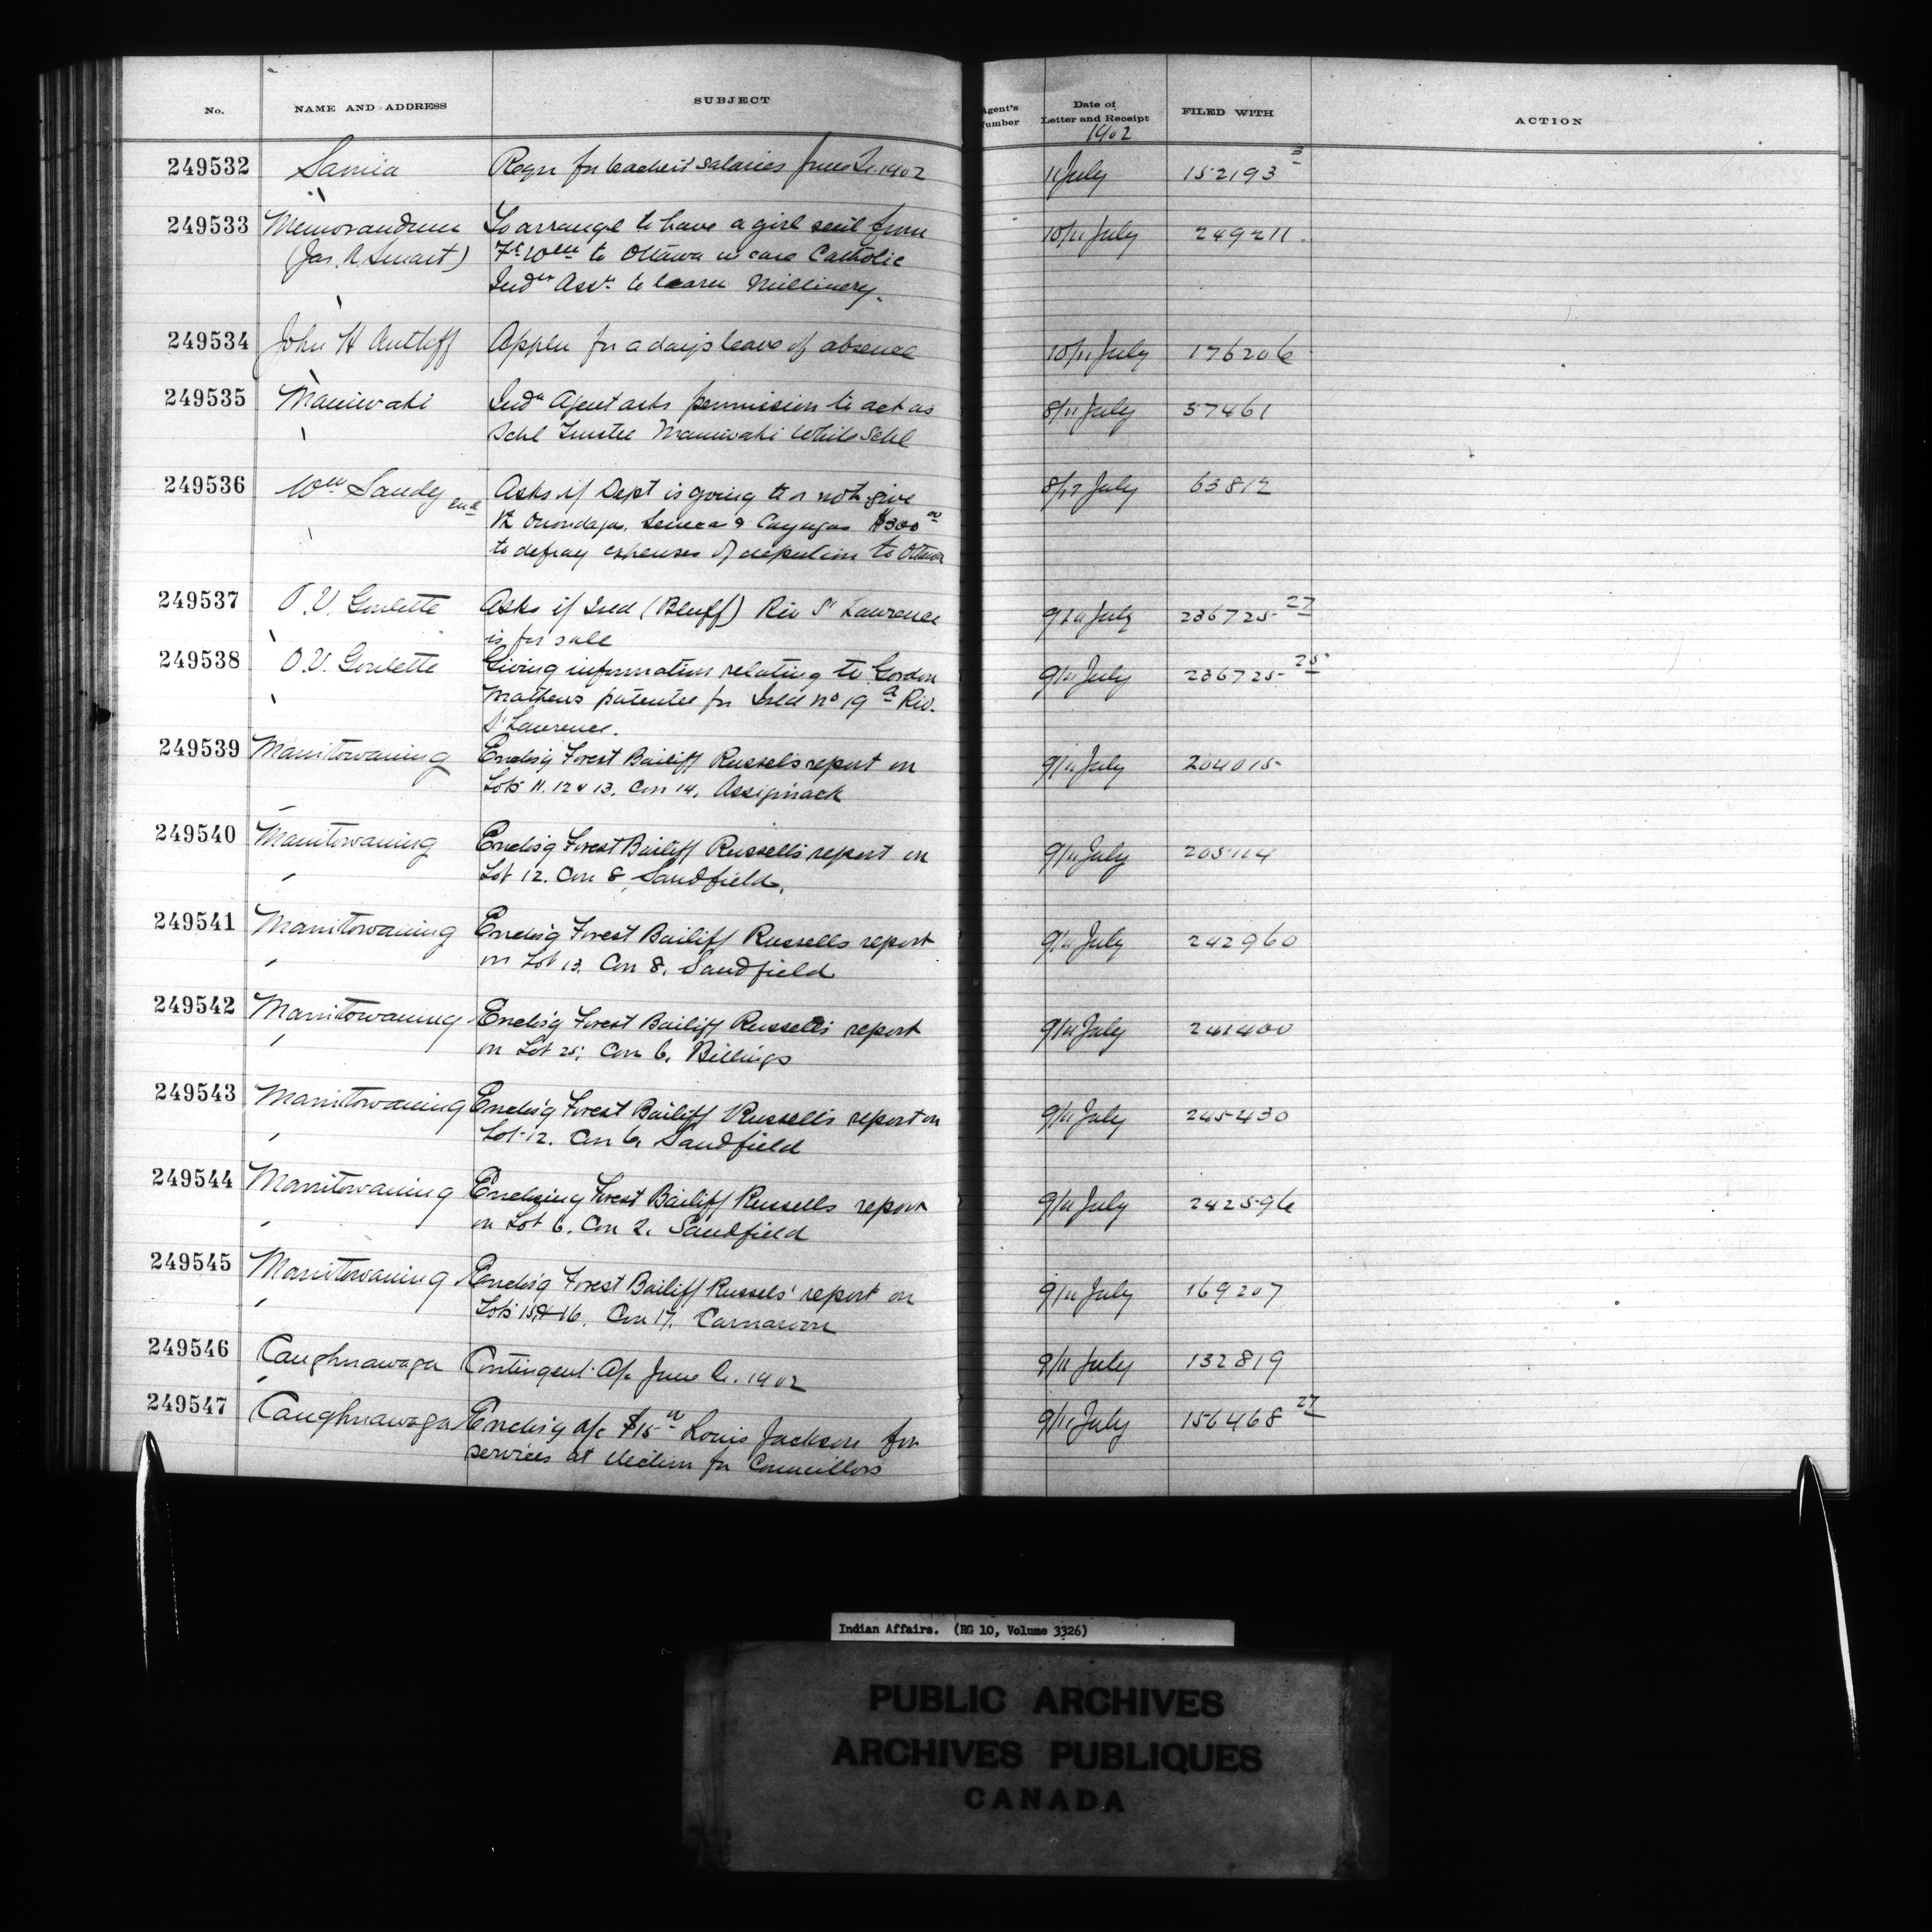 No. NAME AND ADDRESS SUBJECT Agent's Number Date of Letter and Receipt FILED WITH ACTION
1902
249532 Sarnia Reqn for teachers' salaries June Qr. 1902 11 July 152193 3
249533 Memorandum To arrange to have a girl sent from 10/11 July 249211.
(Jas. A. Smart) Ft. Wm to Ottawa in care Catholic
Indn Asst. to learn Millinery.
249534 John H Antliff Appln for a day's leave of absence 10/11 July 176206
249535 Maniwaki Indn Agent asks permission to act as 8/11 July 57461
Schl Trustee Maniwaki White Schl
249536 Wm Sandy Asks if Dept is going to or not give 8/11 July 63812
Onondagas, Senecas & Cayugas $300 00
to defray expenses of deputation to Ottawa
249537 O. V. Goulette Asks if Isld (Bluff) Riv St Lawrence 9/11 July 236725 27
is for sale
249538 O. V. Goulette Giving information relating to Gordon 9/11 July 236725 25
Mathews patentee for Isld No 19 a Riv.
St Lawrence.
249539 Manitowaning Enclos'g Forest Bailiff Russels report on 9/11 July 204015
Lots 11. 12 & 13. Con 14. Assiginack
249540 Manitowaning Enclos'g Forest Bailiff Russell's report on 9/11 July 205114
Lot 12. Con 8, Sandfield.
249541 Manitowaning Enclos'g Forest Bailiff Russells report 9/11 July 242960
on Lot 13. Con 8. Sandfield
249542 Manitowaning Enclos'g Forest Bailiff Russell's report 9/11 July 241400
on Lot 25. Con 6. Billings
249543 Manitowaning Enclos'g Forest Bailiff Russell's report on 9/11 July 245430
Lot 12. Con 6. Sandfield
249544 Manitowaning Enclosing Forest Bailiff Russells report 9/11 July 242596
on Lot 6. Con 2. Sandfield
249545 Manitowaning Enclos'g Forest Bailiff Russels' report on 9/11 July 169207
Lots 15 & 16. Con 17. Carnarvon
249546 Caughnawaga Contingent A/c June Q. 1902 9/11 July 132819
249547 Caughnawaga Enclos'g A/c $15 00 Louis Jackson for 9/11 July 156468 27
services at election for Councillors
Indian Affairs. (RG 10, Volume 3326)
PUBLIC ARCHIVES
ARCHIVES PUBLIQUES
CANADA